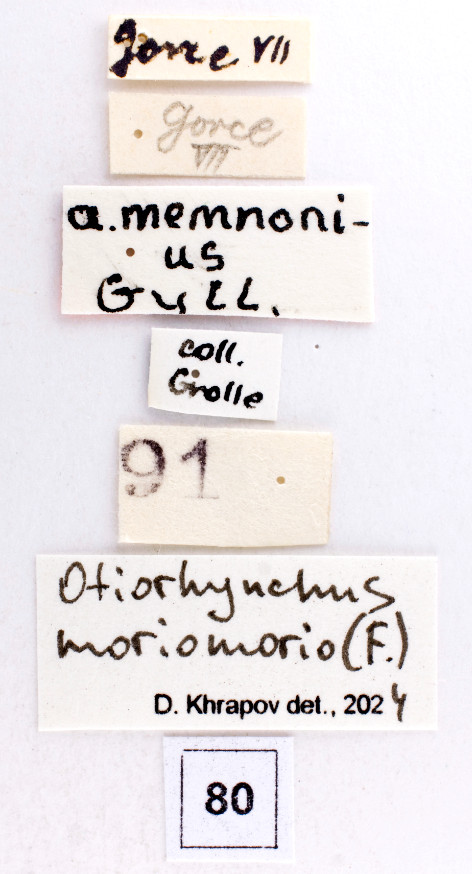 Gorce VII
Gorce
VII
a.memnoni-
us
Gyll.
coll.
Grolle
91
Otiorhynchus
morio morio (F.)
D. Khrapov det., 2024
80